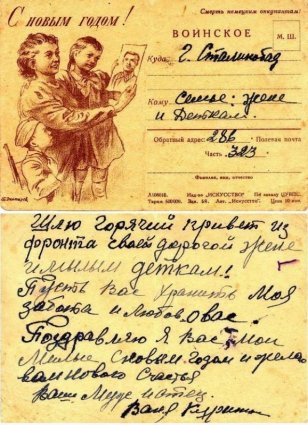 С новым годом!
Смерть немецким оккупантам!
ВОИНСКОЕ
М. Ш.
Куда: г. Сталинабад
Кому Семье: жене
и Деткам.
Обратный адрес: 286 Полевая почта
Часть 323
Фамилия, имя, отчество
Изд-во „ИСКУССТВО"
Цена 20 коп.
Шлю горячий привет из
фронта своей дорогой жене
и милым деткам!
Пусть Вас хранить моя
забота и любов, о вас!
Поздравляю я Вас мои
Милые с новым годом и желаю
вам нового счастья
Ваш муж и отец.
Ваня